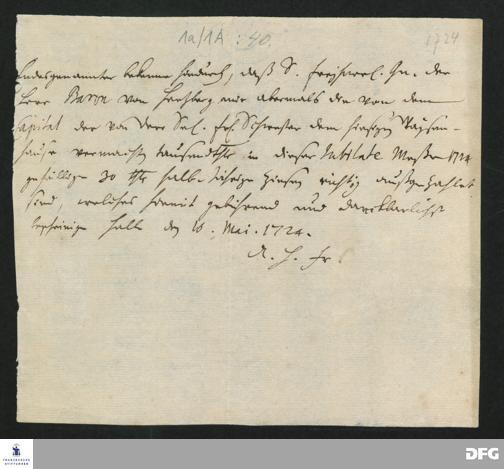 1a/1A : 40.
1724
Endesgenannter bekenne hiedurch, daß S. Freyherrl. Gn. der
Herr Baron von Hertzberg mir abermals die von dem
Capital der von Dero Sel. Frl. Schwester dem hiesigen Waysen-
hause vermachten tausend Thlr in dieser Jubilate Messe 1724
gefällige 30 Thlr halb-Jährige Zinsen richtig außgezahlet
sind, welches hiemit gebührend und danckbarlichst
bescheinige Halle den 16. Maii. 1724.
A. H. Fr
FRANCKESCHE
STIFTUNGEN
DFG